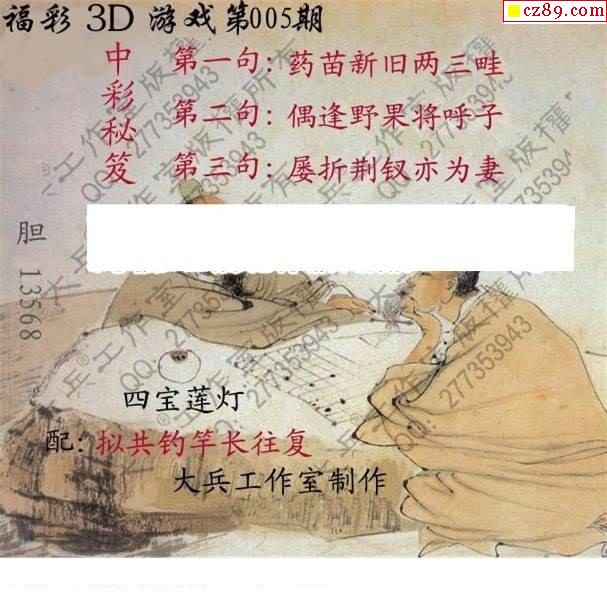 cz89.com
福彩 3D 游戏第005期
中彩秘笈
第一句：药苗新旧两三畦
第二句：偶逢野果将呼子
第三句：屡折荆钗亦为妻
胆 13568
四宝莲灯
配：拟共钓竿长往复
大兵工作室制作
大兵®工作室版权所有
QQ：277353943